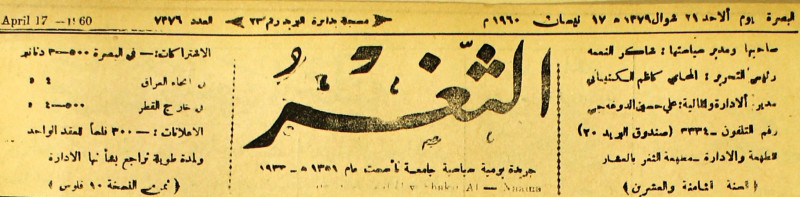 البصرة يوم الاحد ٢١ شوال ١٣٧٩ ه ١٧ نيسان ١٩٦٠ م
مسجلة بدائرة البريد رقم ٢٣
العدد ٧٣٧٦
April 17 — 1960
صاحبها ومدير سياستها : شاكر النعمة
رئيس التحرير : المحامي كاظم
مدير الادارة والمالية : علي حسين
رقم التلفون - ٣٣٣٤ (صندوق البريد ٢٠)
المطبعة والادارة - مطبعة الثغر بالعشار
( السنة الثامنة والعشرين )
الثغر
جريدة يومية سياسية جامعة تأسست عام ١٣٥١ ه - ١٩٣٣ م
Al — Nuama
الاشتراكات :— في البصرة ٥٠٠-٣ دنانير
في انحاء العراق ٤
في خارج القطر ٥٠٠-٤
الاعلانات :— ٣٠٠ فلساً للعقد الواحد
ولمدة طويلة تراجع بشأنها الادارة
( ثمن النسخة ١٠ فلوس )